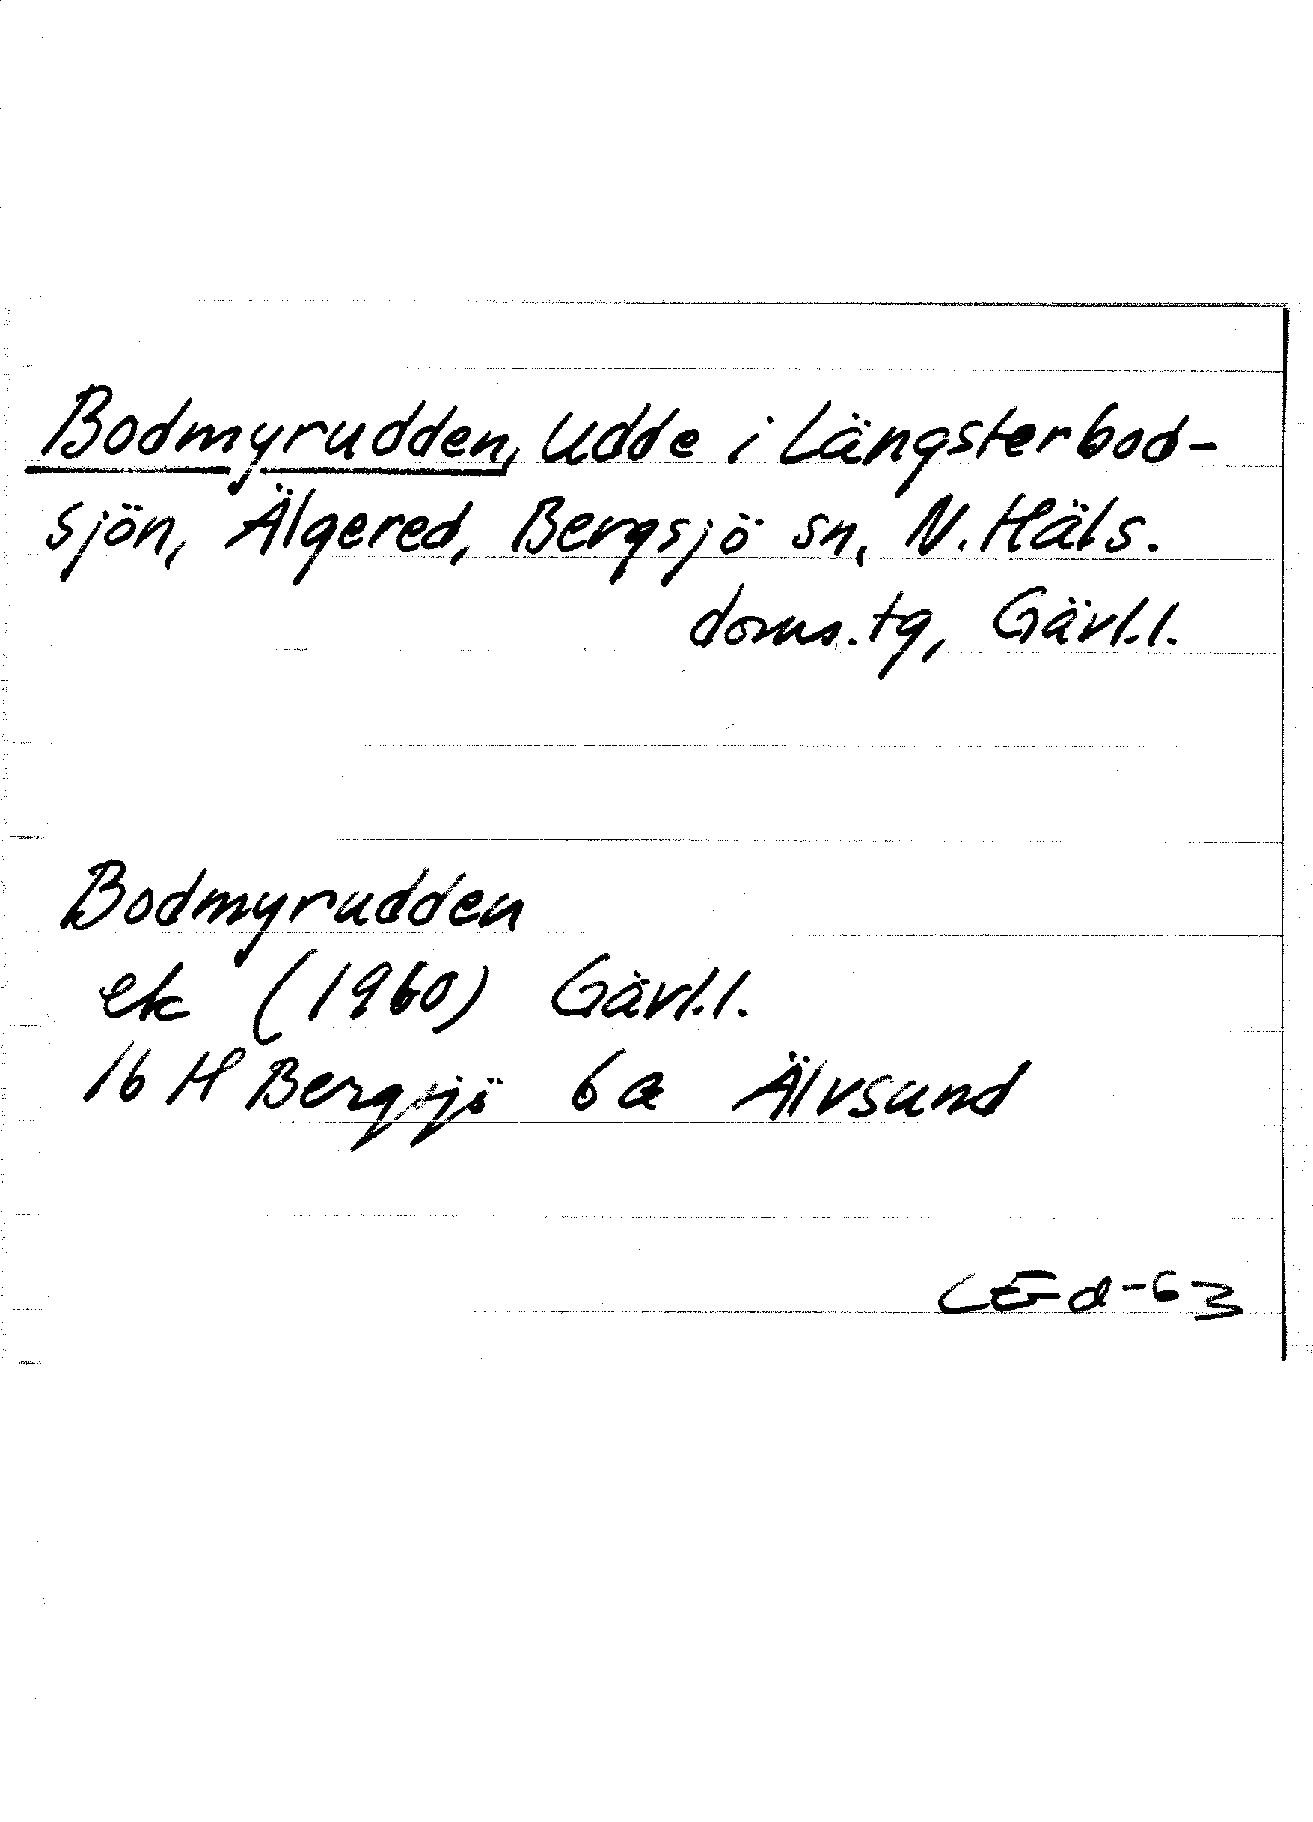 Bodmyrudden, udde i Längsterbod-
sjön, Älgered, Bergsjö sn, N. Häls.
doms. tg, Gävl.l.
Bodmyrudden
ek (1960) Gävl.l.
16 H Bergsjö 6a Älvsund
LEd-63